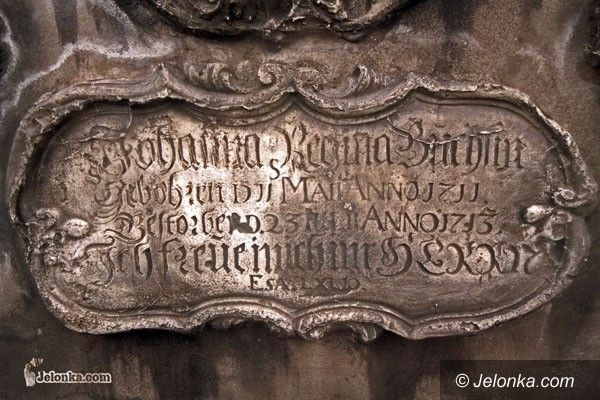 Johanna Regina
Gebohren D 11 Maii ANNO 1711
Gestorben D 23 ANNO 1713
Ich freue mich im HERRN
ESA. LXI.10
Jelonka.com
© Jelonka.com